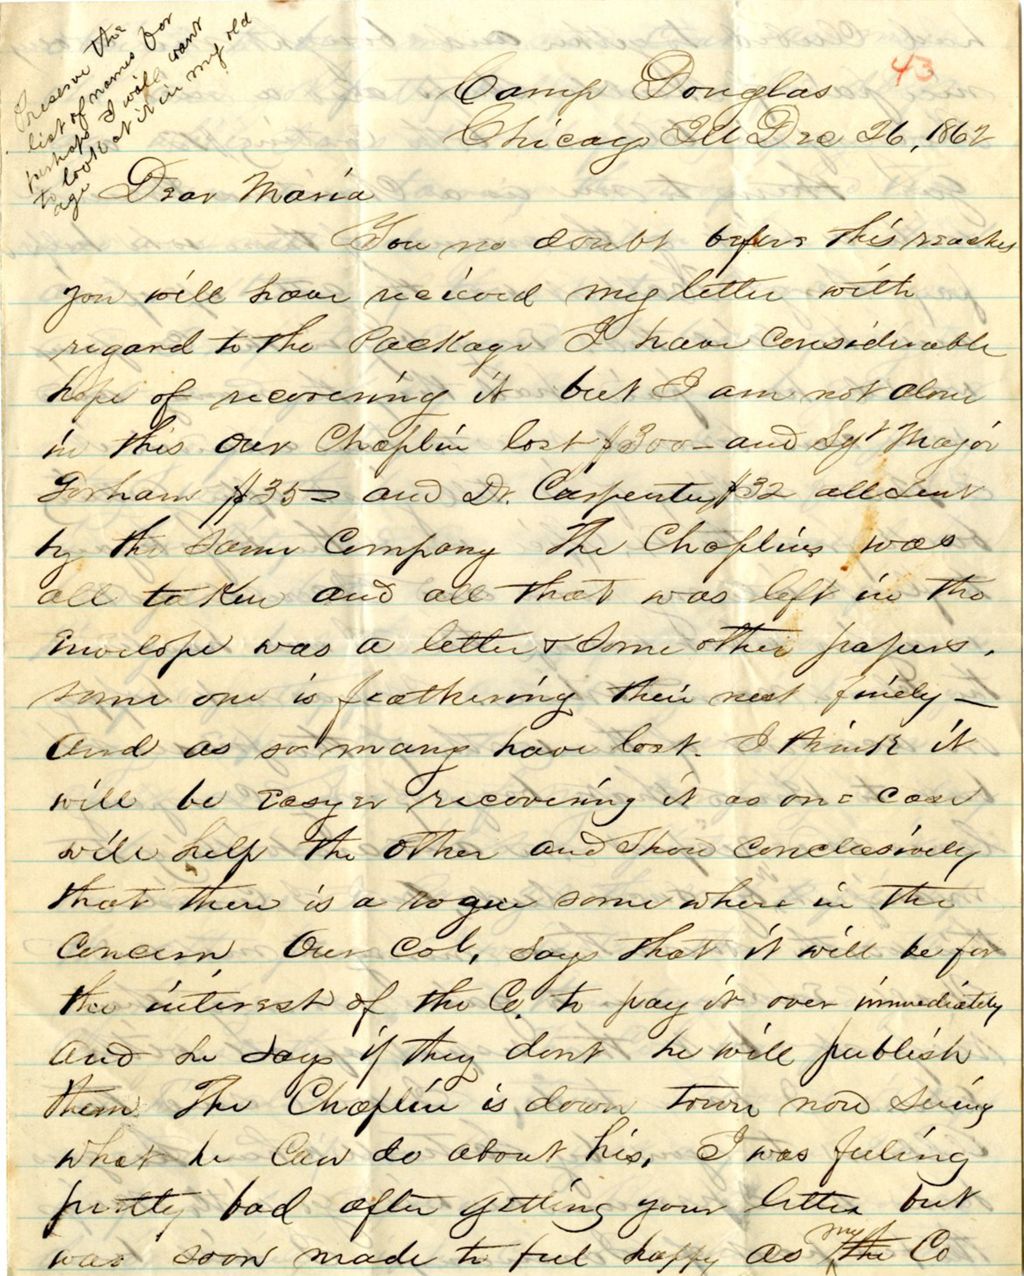 Preserve this
list of names for
perhaps I will want
to look at it in my old
age
43
Camp Douglas
Chicago Ill Dec 26, 1862
Dear Maria
You no doubt before this reaches
you will have reicieved my letter with
regard to the Package I have considerable
hope of recovering it but I am not alone
in this Our Chaplin lost $300— and Sgt Major
Gorham $35= and Dr. Carpenter $32 all sent
by the same Company The Chaplins was
all taken and all that was left in the
Envelope was a letter & some other papers.
some one is feathering their nest finely—
and as so many have lost. I think it
will be Easyer recovering it as one case
will help the other and show conclusively
that there is a rogue some where in the
Concern Our Col, says that it will be for
the interest of the Co. to pay it over immediately
and he says if they dont he will publish
them The Chaplin is down town now seeing
what he Can do about his. I was feeling
pretty bad after getting your letter but
was soon made to feel happy as my the Co